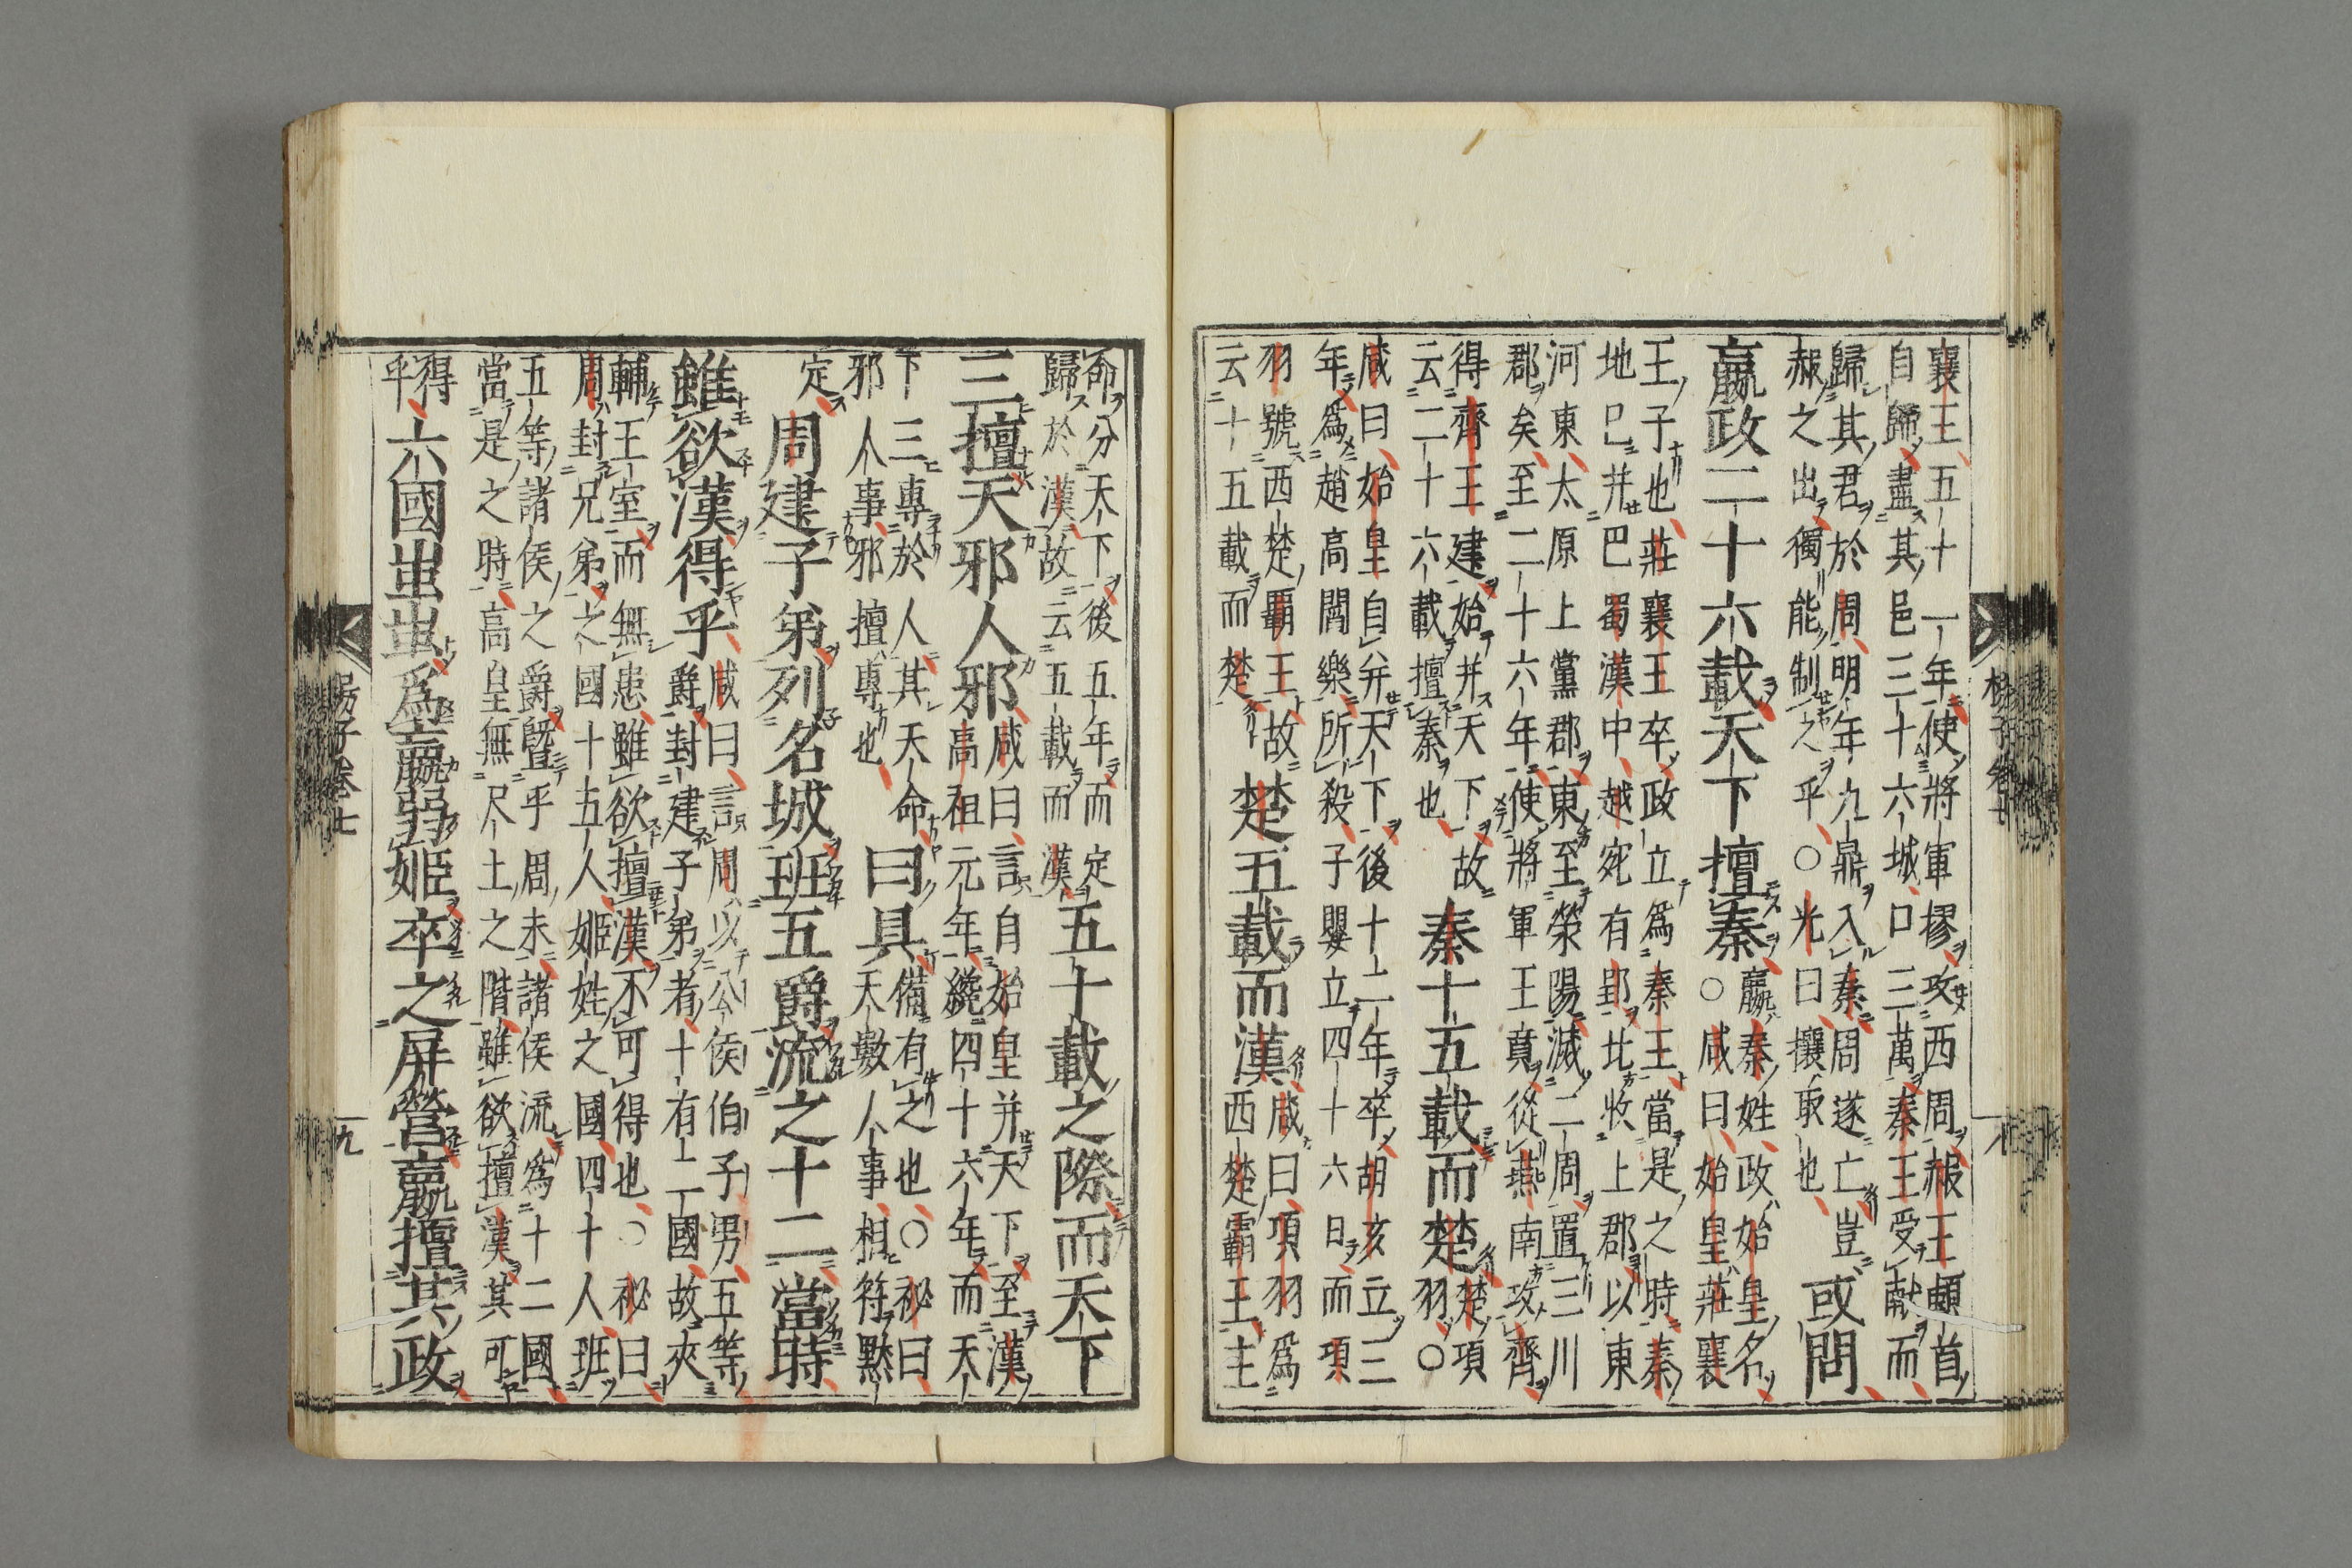 襄王五十一年使將軍摎攻西周赧王頓首
自歸盡其邑三十六城口三萬秦王受獻而
歸其君於周明年九鼎入秦周遂亡豈
赧之出獨能制之乎○光曰攘取也
或問
嬴政二十六載天下擅秦
嬴秦姓政始皇名
○咸曰始皇莊襄
王子也莊襄王卒政立爲秦王當是之時秦
地已并巴蜀漢中越宛有郢北收上郡以東
河東太原上黨郡東至滎陽滅二周置三川
郡矣至二十六年使將軍王賁從燕南攻齊
得齊王建始并天下故
云二十六載擅秦也
秦十五載而楚
楚項
羽○
咸曰始皇自弁天下後十二年卒胡亥立三
年爲趙高閻樂所殺子嬰立四十六日而項
羽號西楚霸王故
云十五載而楚
楚五載而漢
咸曰項羽爲
西楚霸王主
命分天下後五年而定
歸於漢故云五載而漢
五十載之際而天下
三擅天邪人邪
咸曰言自始皇并天下至漢
高祖元年纔四十六年而天
下三專於人其天命
邪人事邪擅專也
曰具
備有之也○祕曰
天數人事相符黙
定
周建子弟列名城班五爵流之十二當時
雖欲漢得乎
咸曰言周以公侯伯子男五等
爵封建子弟者十有二國故夾
輔王室而無患雖欲擅漢不可得也○祕曰
周封兄弟之國十五人姬姓之國四十人班
五等諸侯之爵曁乎周末諸侯流爲十二國
當是之時高皇無尺土之階雖欲擅漢其可
得
乎
六國蚩蚩爲嬴弱姬卒之屏營嬴擅其政
楊子卷七
八
楊子卷七
九